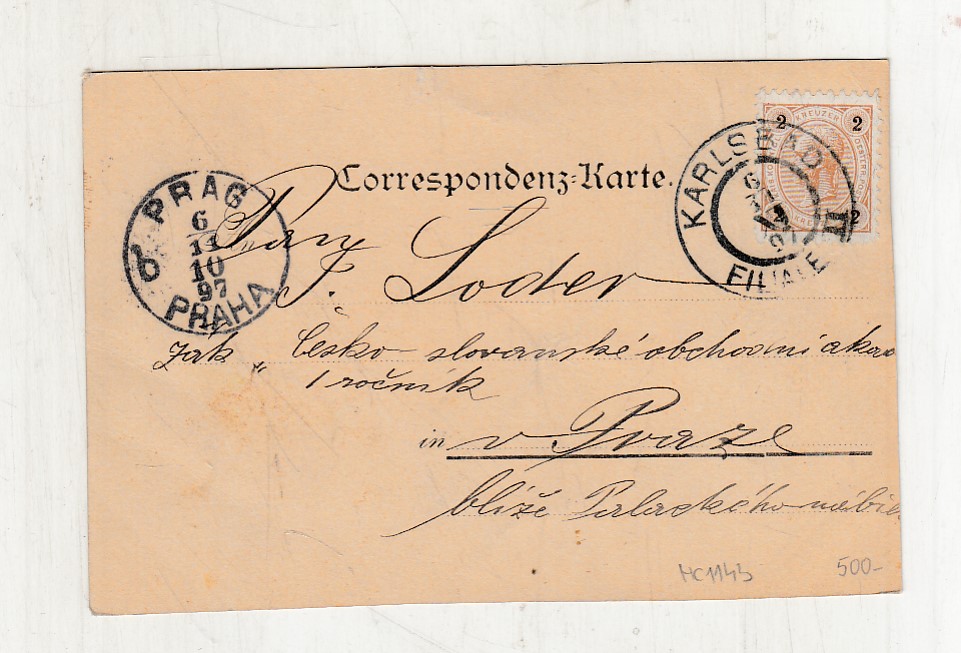 Correspondenz-Karte.
2 KREUZER 2
2
KARLSBAD
6
97
FILIALE II
PRAG
6
11
10
97
PRAHA
Pan
J. Loder
žák „ Česko-slovanské obchodní akad
I ročník
in v Praze
blíže Palackého nábře
MC1143
500-